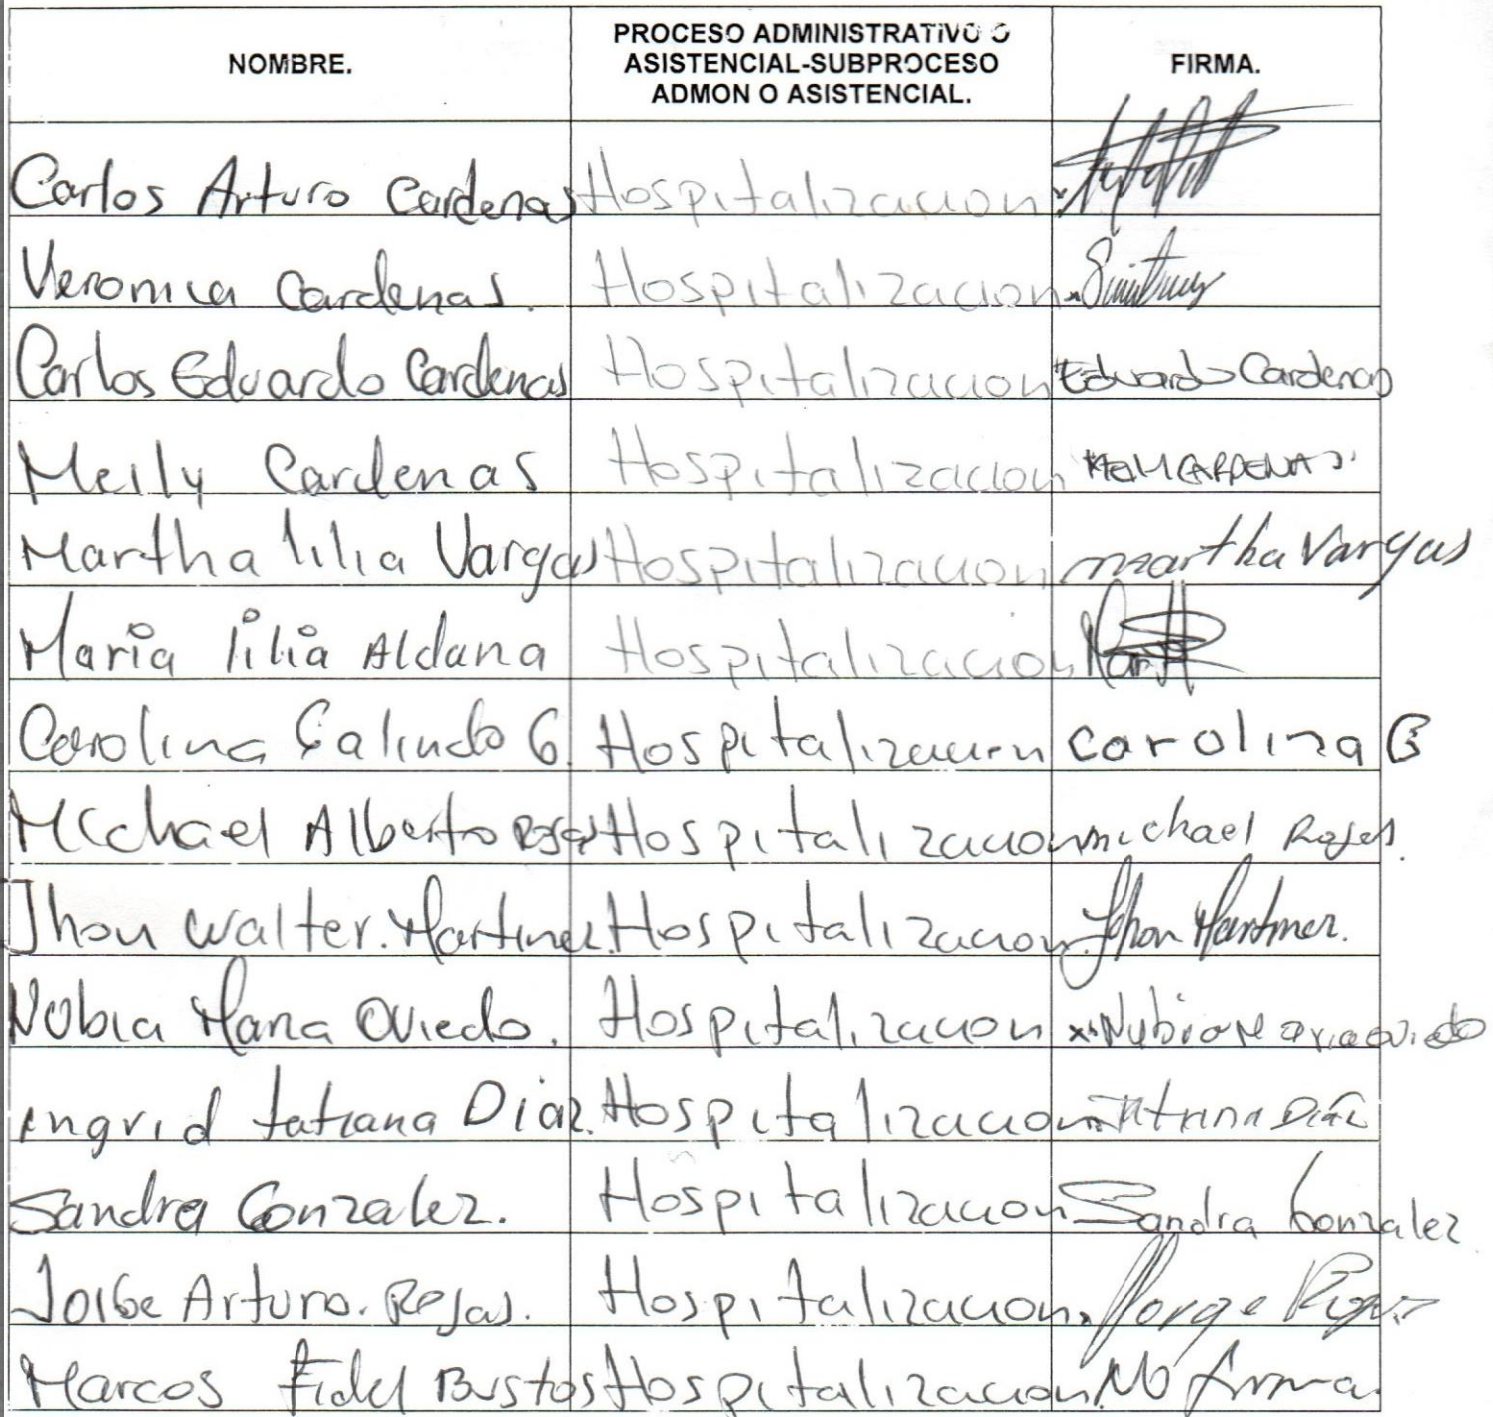 NOMBRE.
PROCESO ADMINISTRATIVO O
ASISTENCIAL-SUBPROCESO
ADMON O ASISTENCIAL.
FIRMA.
Carlos Arturo Cardenas Hospitalizacion
Veronica Cardenas. Hospitalizacion
Carlos Eduardo Cardenas Hospitalizacion Eduardo Cardenas
Meily Cardenas Hospitalizacion CARDENAS
Martha lilia Vargas Hospitalizacion martha Vargas
Maria lilia Aldana Hospitalizacion
Carolina Galindo G. Hospitalizacion carolina G
Michael Alberto Rojas Hospitalizacion michael Rojas.
Jhon Walter. Martinez. Hospitalizacion Jhon Martinez.
Nubia Maria Oviedo. Hospitalizacion x Nubia Maria oviedo
ingrid tatiana Diaz. Hospitalizacion Tatiana Diaz
Sandra Gonzalez. Hospitalizacion Sandra Gonzalez
Jorge Arturo. Rojas. Hospitalizacion. Jorge
Marcos Fidel Bustos Hospitalizacion. No firma.